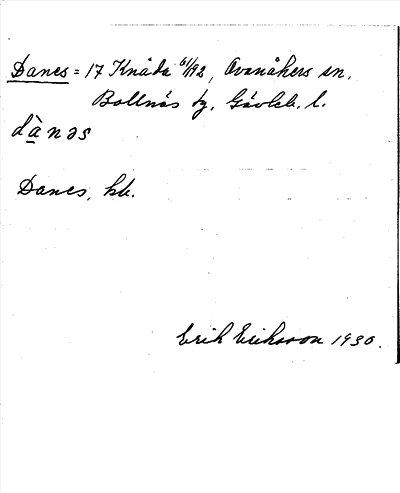 Danes = 17 Knåda 6/192, Ovanåkers sn,
Bollnäs tg, Gävleb. l.
dànəs
Danes, hb.
Erik Eriksson 1930.